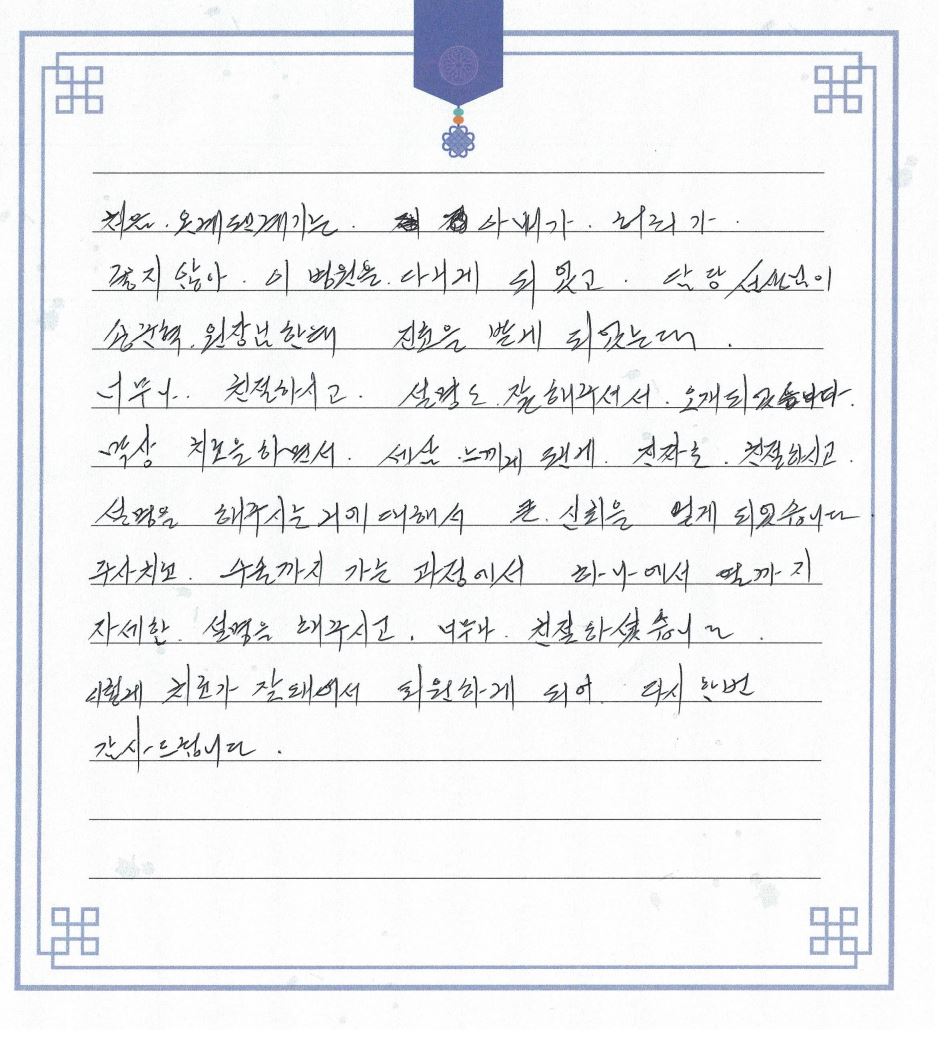 처음. 오게된계기는. 아버가. 허리가.
좋지 않아. 이 병원을. 다니게 되었고. 담당 선생님이
송권혁. 원장님한테 진료을 받게 되었는데.
너무나. 친절하시고. 설명도 잘해주셔서. 오게되었습니다.
막상 치료을하면서. 세삼 느끼게 된게. 친자로. 친절하시고.
설명을 해주시는거에대해서 큰. 신회을 얻게 되었습니다.
주사치료. 수술까지 가는 과정에서 하나에서 열까지
자세한. 설명을 해주시고. 너무나. 친절하셨습니다.
이렇게 치료가 잘돼어서 퇴원하게 되어. 다시한번
감사드립니다.